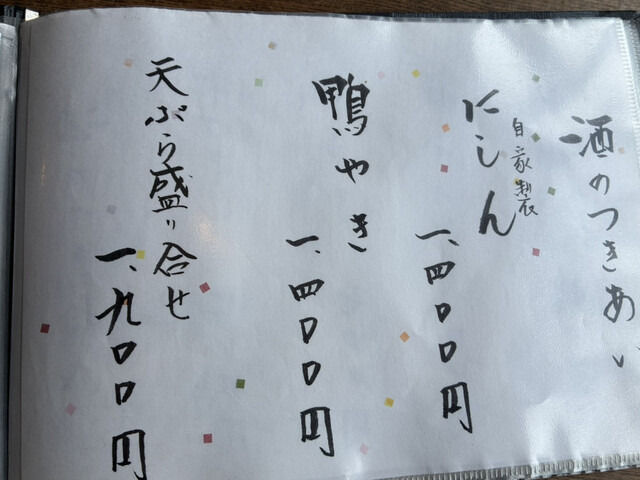 酒のつきあい
自家製
にしん
一、四〇〇円
鴨やき
一、四〇〇円
天ぷら盛り合せ
一、九〇〇円